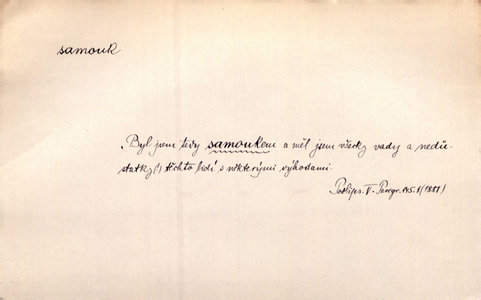 samouk
„Byl jsem tedy samoukem a měl jsem všecky vady a nedů-
statky(!) těchto lidí s některými výhodami.
V. 145.1 (1881)